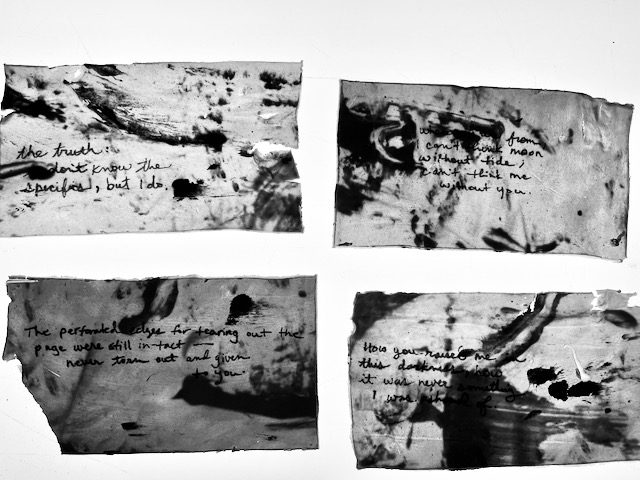 the truth:
don't know the
specifics, but I do.
from
can't think moon
without tide,
can't think me
without you.
The perforated edges for tearing out the
page were still in tact —
never torn out and given
to you.
How you raised me in
this darkness, how
it was never something
I was afraid of.